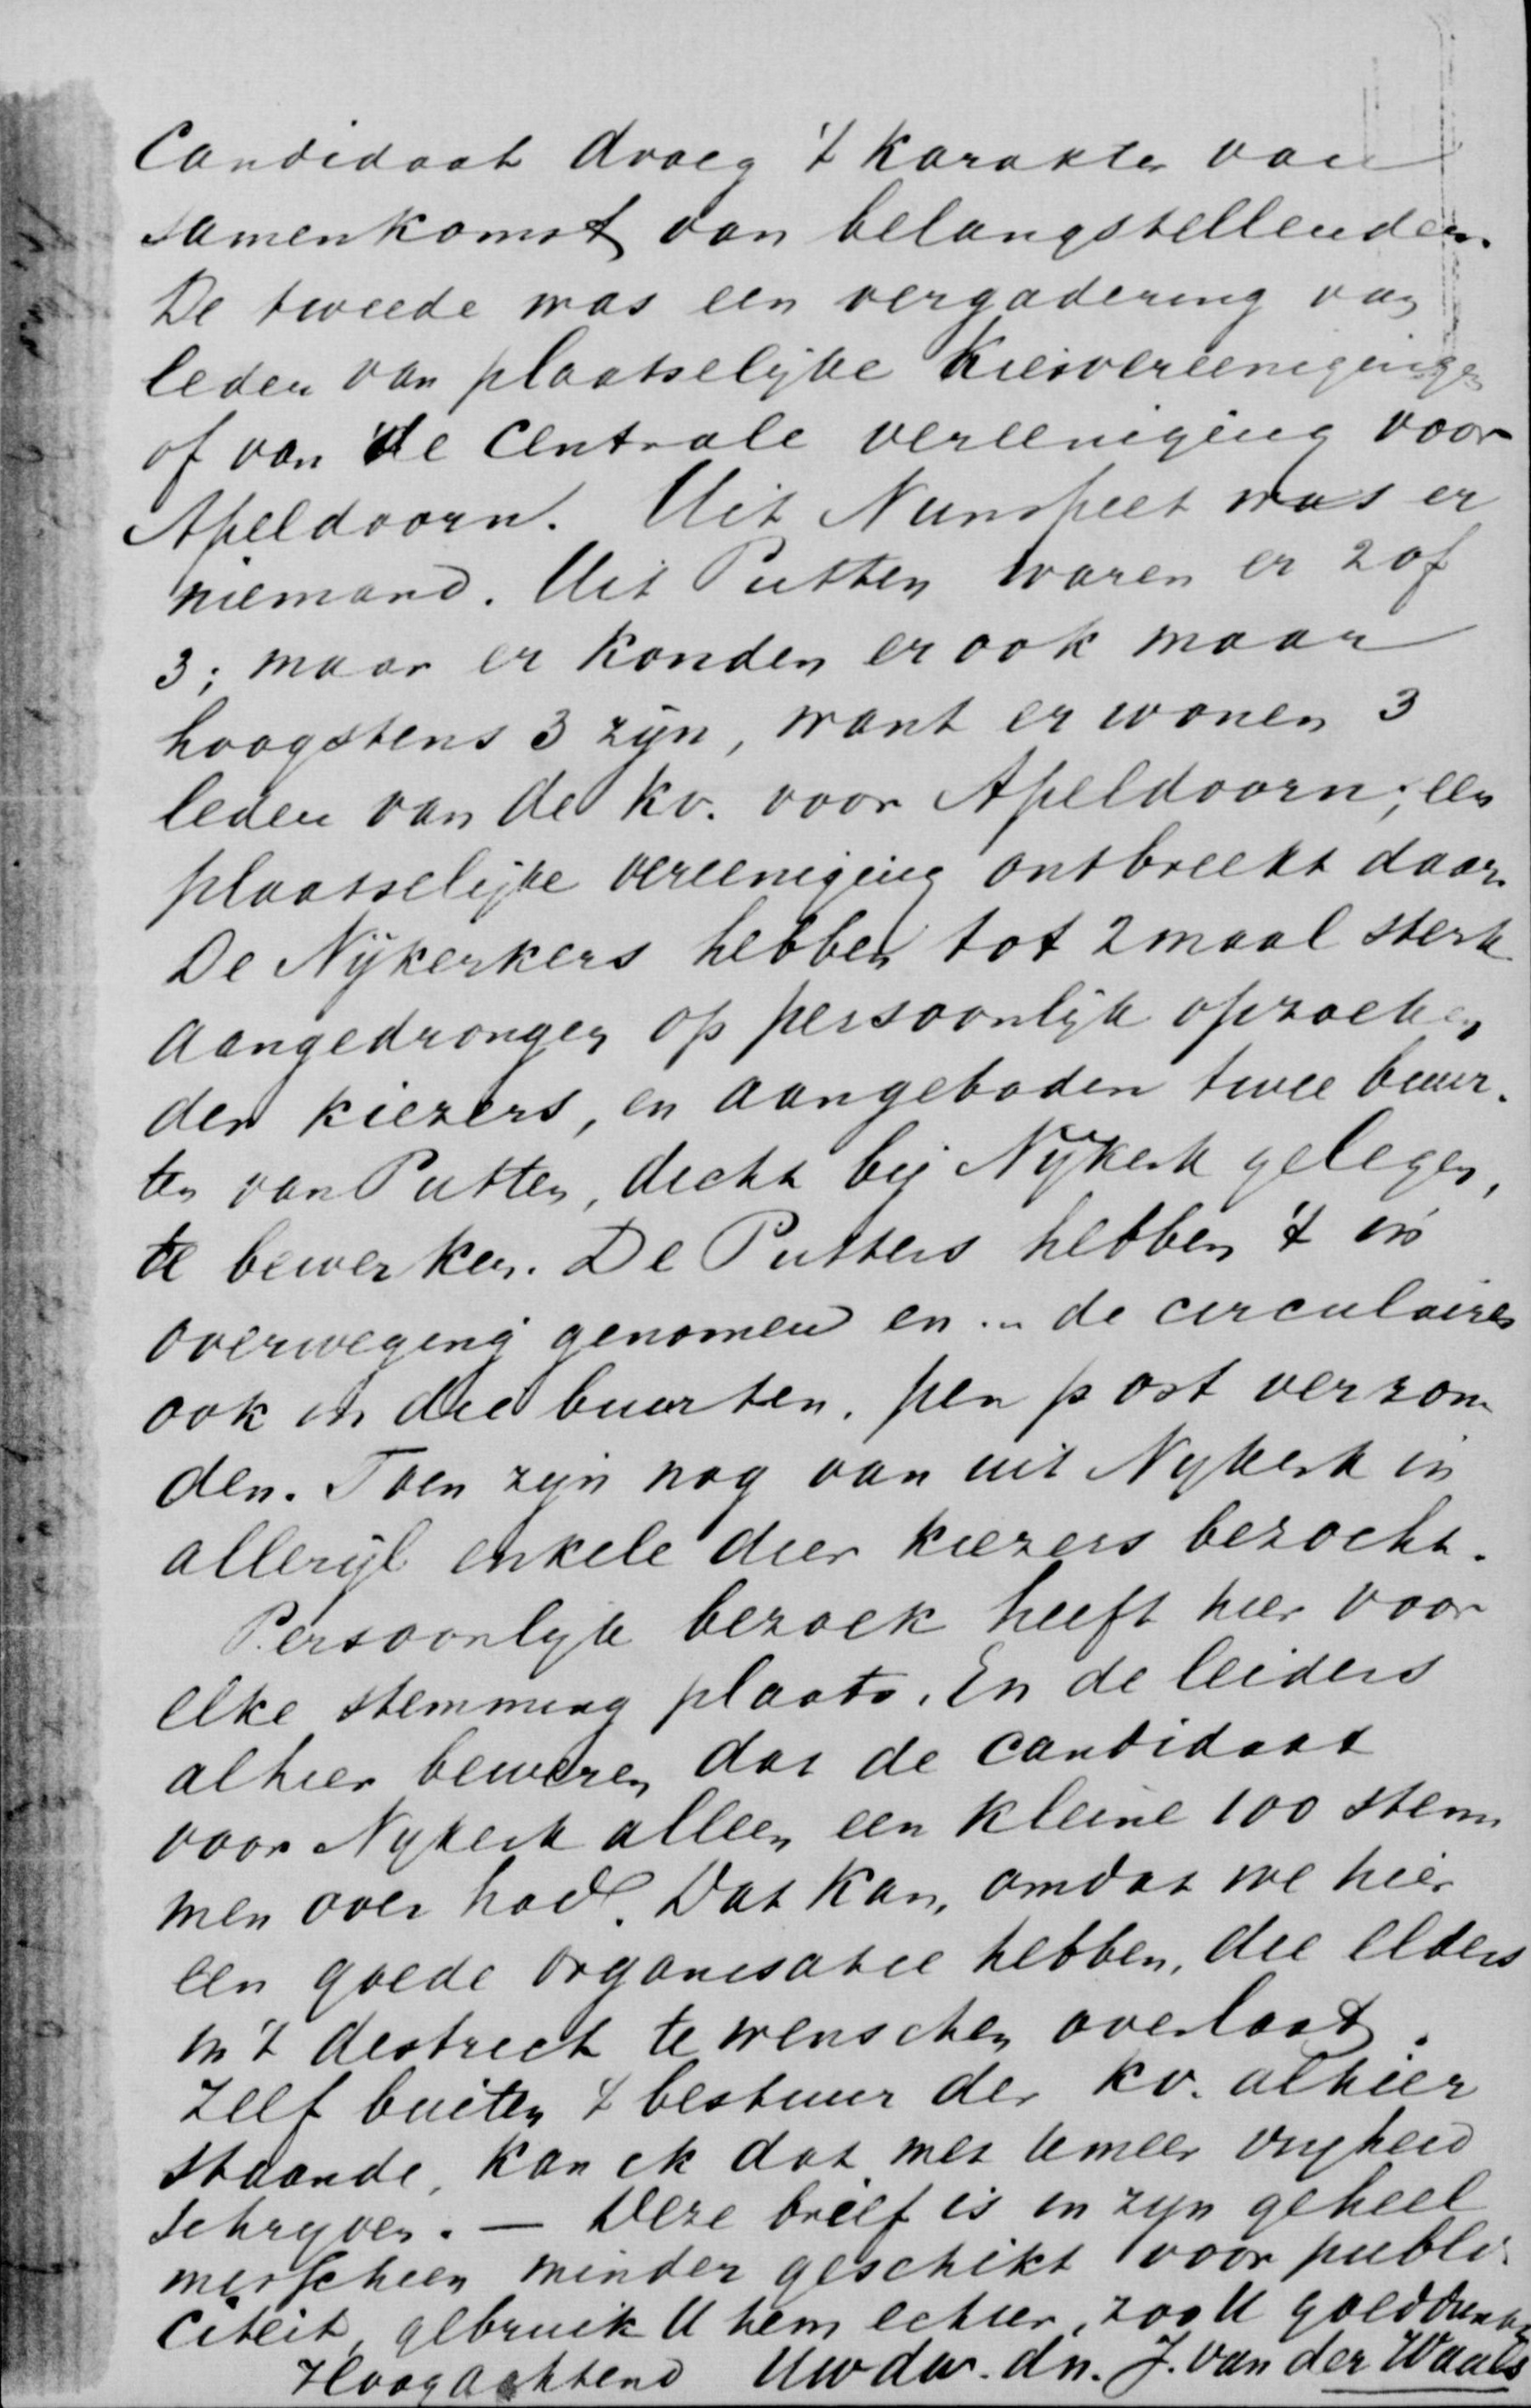 Candidaat droeg 't karakter van
samenkomst van belangstellenden.
De tweede was een vergadering van
leden van plaatselijke Kiesvereenigingen
of van de centrale vereeniging voor
Apeldoorn. Uit Nunspeet was er
niemand. Uit Putten waren er 2 of
3; maar er konden er ook maar
hoogstens 3 zijn, want er wonen 3
leden van de kv. voor Apeldoorn; een
plaatselijke vereeniging ontbreekt daar.
De Nijkerkers hebben tot 2 maal sterk
aangedrongen op persoonlijk opzoeken
der kiezers, en aangeboden twee buur-
ten van Putten, dicht bij Nijkerk gelegen,
te bewerken. De Putters hebben 't in
overweging genomen en ... de circulaires
ook in die buurten, per post verzon
den. Toen zijn nog van uit Nijkerk in
allerijl enkele dier kiezers bezocht.
Persoonlijk bezoek heeft hier voor
elke stemming plaats. En de leiders
alhier beweren dat de candidaat
voor Nijkerk alleen een kleine 100 stem
men over had. Dat kan, omdat we hier
een goede organisatie hebben, die elders
in 't district te wenschen overlaat.
Zelf buiten 't bestuur der kv. alhier
staande, kan ik dat met temeer vrijheid
schrijven. — Deze brief is in zijn geheel
misschien minder geschikt voor publi-
citeit, gebruik U hem echter, zoo U goeddunkt
Hoogachtend Uw dw. dn. J. van der Waals